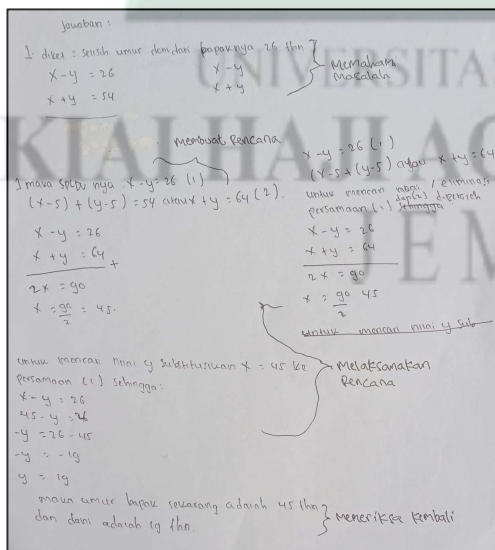 Jawaban :
1. diket = selisih umur doni dari bapaknya 26 thn
x - y = 26
x + y = 54
x - y
x + y
Memahami
Masalah
UNIVERSITAS
KIAI HAJI AC
JEM
membuat Rencana
1 maka SPLDV nya x - y = 26 (1)
(x-5) + (y-5) = 54 atau x + y = 64 (2).
x - y = 26
x + y = 64 +
2x = 90
x = 90/2 = 45.
x - y = 26 (1)
(x-5 + (y-5) atau x + y = 64
untuk mencari nilai / eliminasi
persamaan (1) dan (2) diperoleh
sehingga
x - y = 26
x + y = 64
2x = 90
x = 90/2 45
untuk mencari nilai y sub
untuk mencari nilai y substitusikan x = 45 ke
persamaan (1) sehingga :
x - y = 26
45 - y = 26
-y = 26 - 45
-y = -19
y = 19
Melaksanakan
Rencana
maka umur bapak sekarang adalah 45 thn
dan doni adalah 19 thn.
Memeriksa kembali